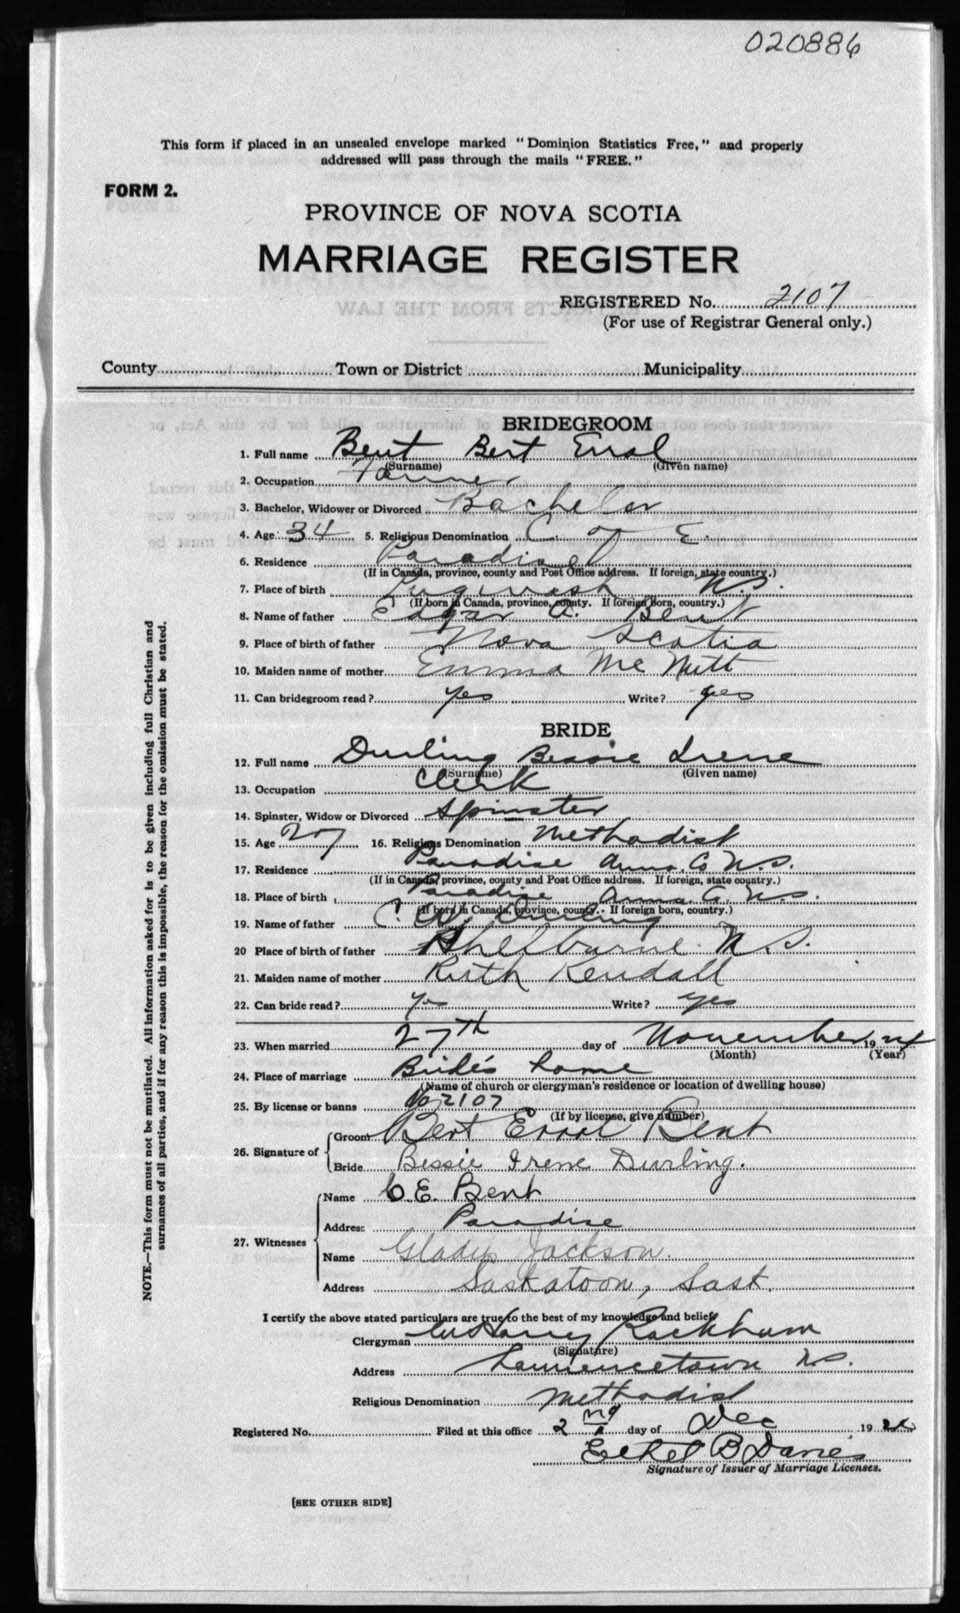 020886
This form if placed in an unsealed envelope marked "Dominion Statistics Free," and properly
addressed will pass through the mails "FREE."
FORM 2.
PROVINCE OF NOVA SCOTIA
MARRIAGE REGISTER
REGISTERED No. 2107
(For use of Registrar General only.)
County Town or District Municipality
BRIDEGROOM
1. Full name Bent Bert Errol
(Surname) (Given name)
2. Occupation Farmer
3. Bachelor, Widower or Divorced Bachelor
4. Age 34 5. Religious Denomination C. of E.
6. Residence Paradise
(If in Canada, province, county and Post Office address. If foreign, state country.)
7. Place of birth Pugwash N.S.
(If born in Canada, province, county. If foreign born, country.)
8. Name of father Edgar A. Bent
9. Place of birth of father Nova Scotia
10. Maiden name of mother Emma Mc Nutt
11. Can bridegroom read? yes Write? yes
BRIDE
12. Full name Durling Bessie Irene
(Surname) (Given name)
13. Occupation Clerk
14. Spinster, Widow or Divorced Spinster
15. Age 27 16. Religious Denomination Methodist
17. Residence Paradise Anna. Co N.S.
(If in Canada, province, county and Post Office address. If foreign, state country.)
18. Place of birth Paradise Anna. Co. N.S.
(If born in Canada, province, county. If foreign born, country.)
19. Name of father C. Durling
20 Place of birth of father Shelburne N.S.
21. Maiden name of mother Ruth Kendall
22. Can bride read? Yes Write? yes
23. When married 27th day of November 1924
(Month) (Year)
24. Place of marriage Bride's home
(Name of church or clergyman's residence or location of dwelling house)
25. By license or banns No 2107
(If by license, give number)
26. Signature of Groom Bert Errol Bent
Bride Bessie Irene Durling.
27. Witnesses Name C. E. Bent
Address Paradise
Name Gladys Jackson.
Address Saskatoon, Sask.
I certify the above stated particulars are true to the best of my knowledge and belief.
Clergyman Harry Rackham
(Signature)
Address Lawrencetown N.S.
Religious Denomination Methodist
Registered No. Filed at this office 2nd day of Dec 1924
Ethel B Davies
Signature of Issuer of Marriage Licenses.
[SEE OTHER SIDE]
NOTE.—This form must not be mutilated. All information asked for is to be given including full Christian and
surnames of all parties, and if for any reason this is impossible, the reason for the omission must be stated.